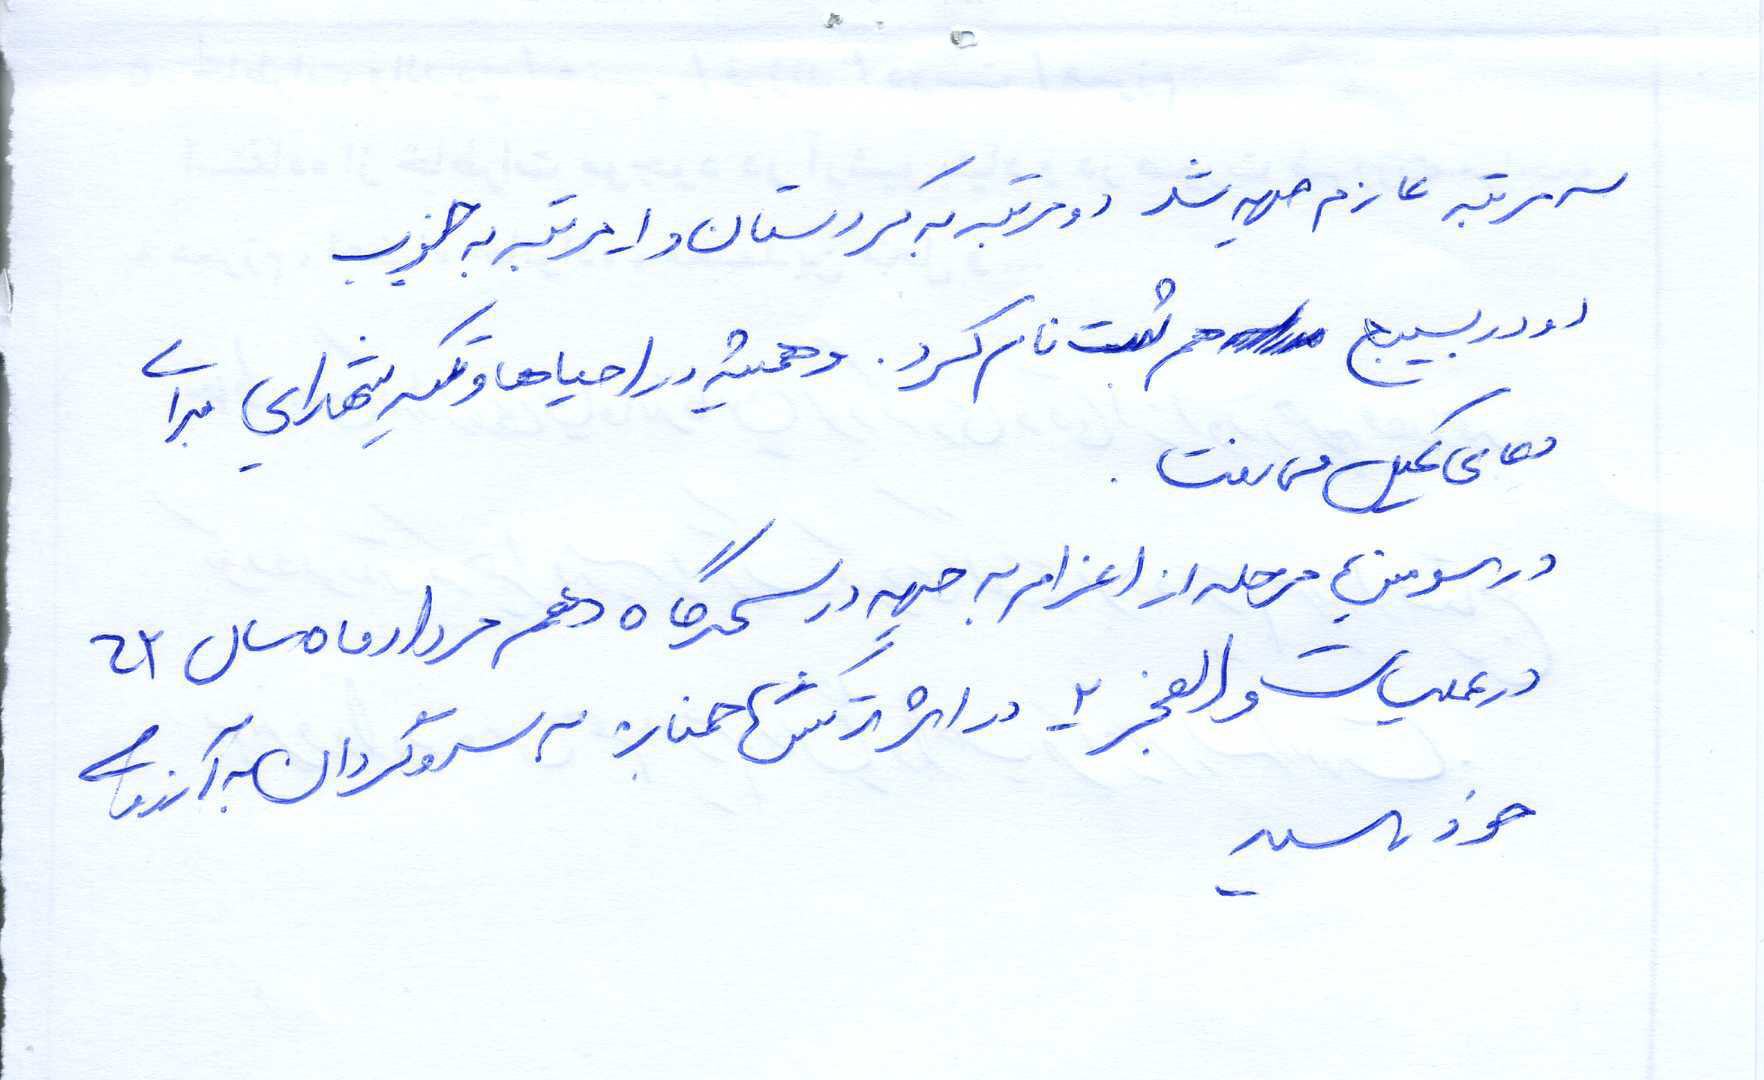 سه مرتبه عازم جبهه شد دو مرتبه به کردستان و ا مرتبه به جنوب
او در بسیج هم ثبت نام کرد. و همیشه در احیاها و تکیه شهدای برای
دعای کمیل می رفت.
در سومین مرحله از اعزام به جبهه در سحرگاه دهم مرداد ماه سال ٦٢
در عملیات والفجر ٢ در اثر ترکش خمپاره به سر و گردان به آرزوی
خود رسید